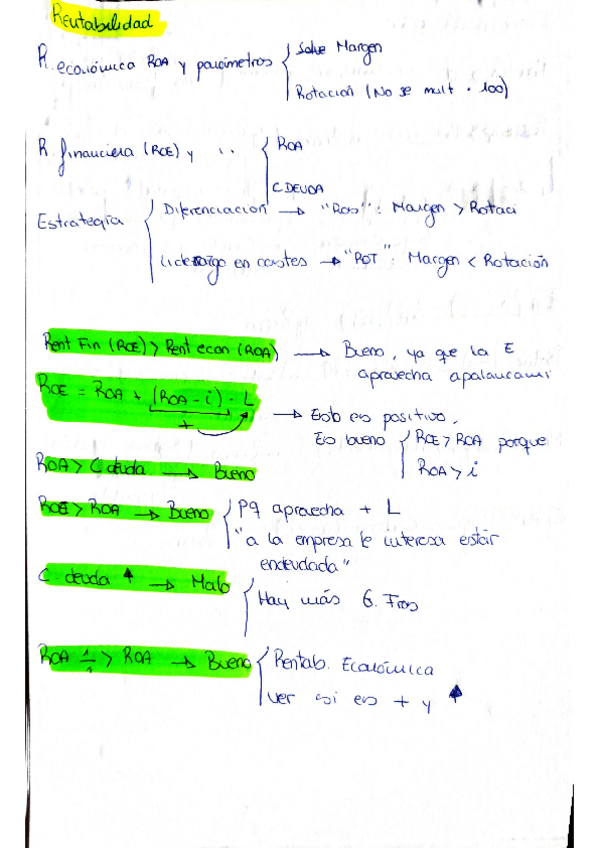 Rentabilidad
R. económica ROA y parámetros { Sobre Margen
Rotación (No se mult · 100)
R. financiera (ROE) y .. { ROA
C DEUDA
Estrategia { Diferenciación → "ROS": Margen > Rotaci
Liderazgo en costes → "ROT": Margen < Rotación
Rent Fin (ROE) > Rent econ (ROA) → Bueno, ya que la E
aprovecha apalancami
ROE = ROA + (ROA - i) · L
+ → Esto es positivo.
Es bueno { ROE > ROA porque
ROA > i
ROA > C deuda → Bueno
ROE > ROA → Bueno { Pq aprovecha + L
"a la empresa le interesa estar
endeudada"
C. deuda ↑ → Malo { Hay más G. Fros
ROA > ROA → Bueno { Rentab. Económica
ver si es + y ↑